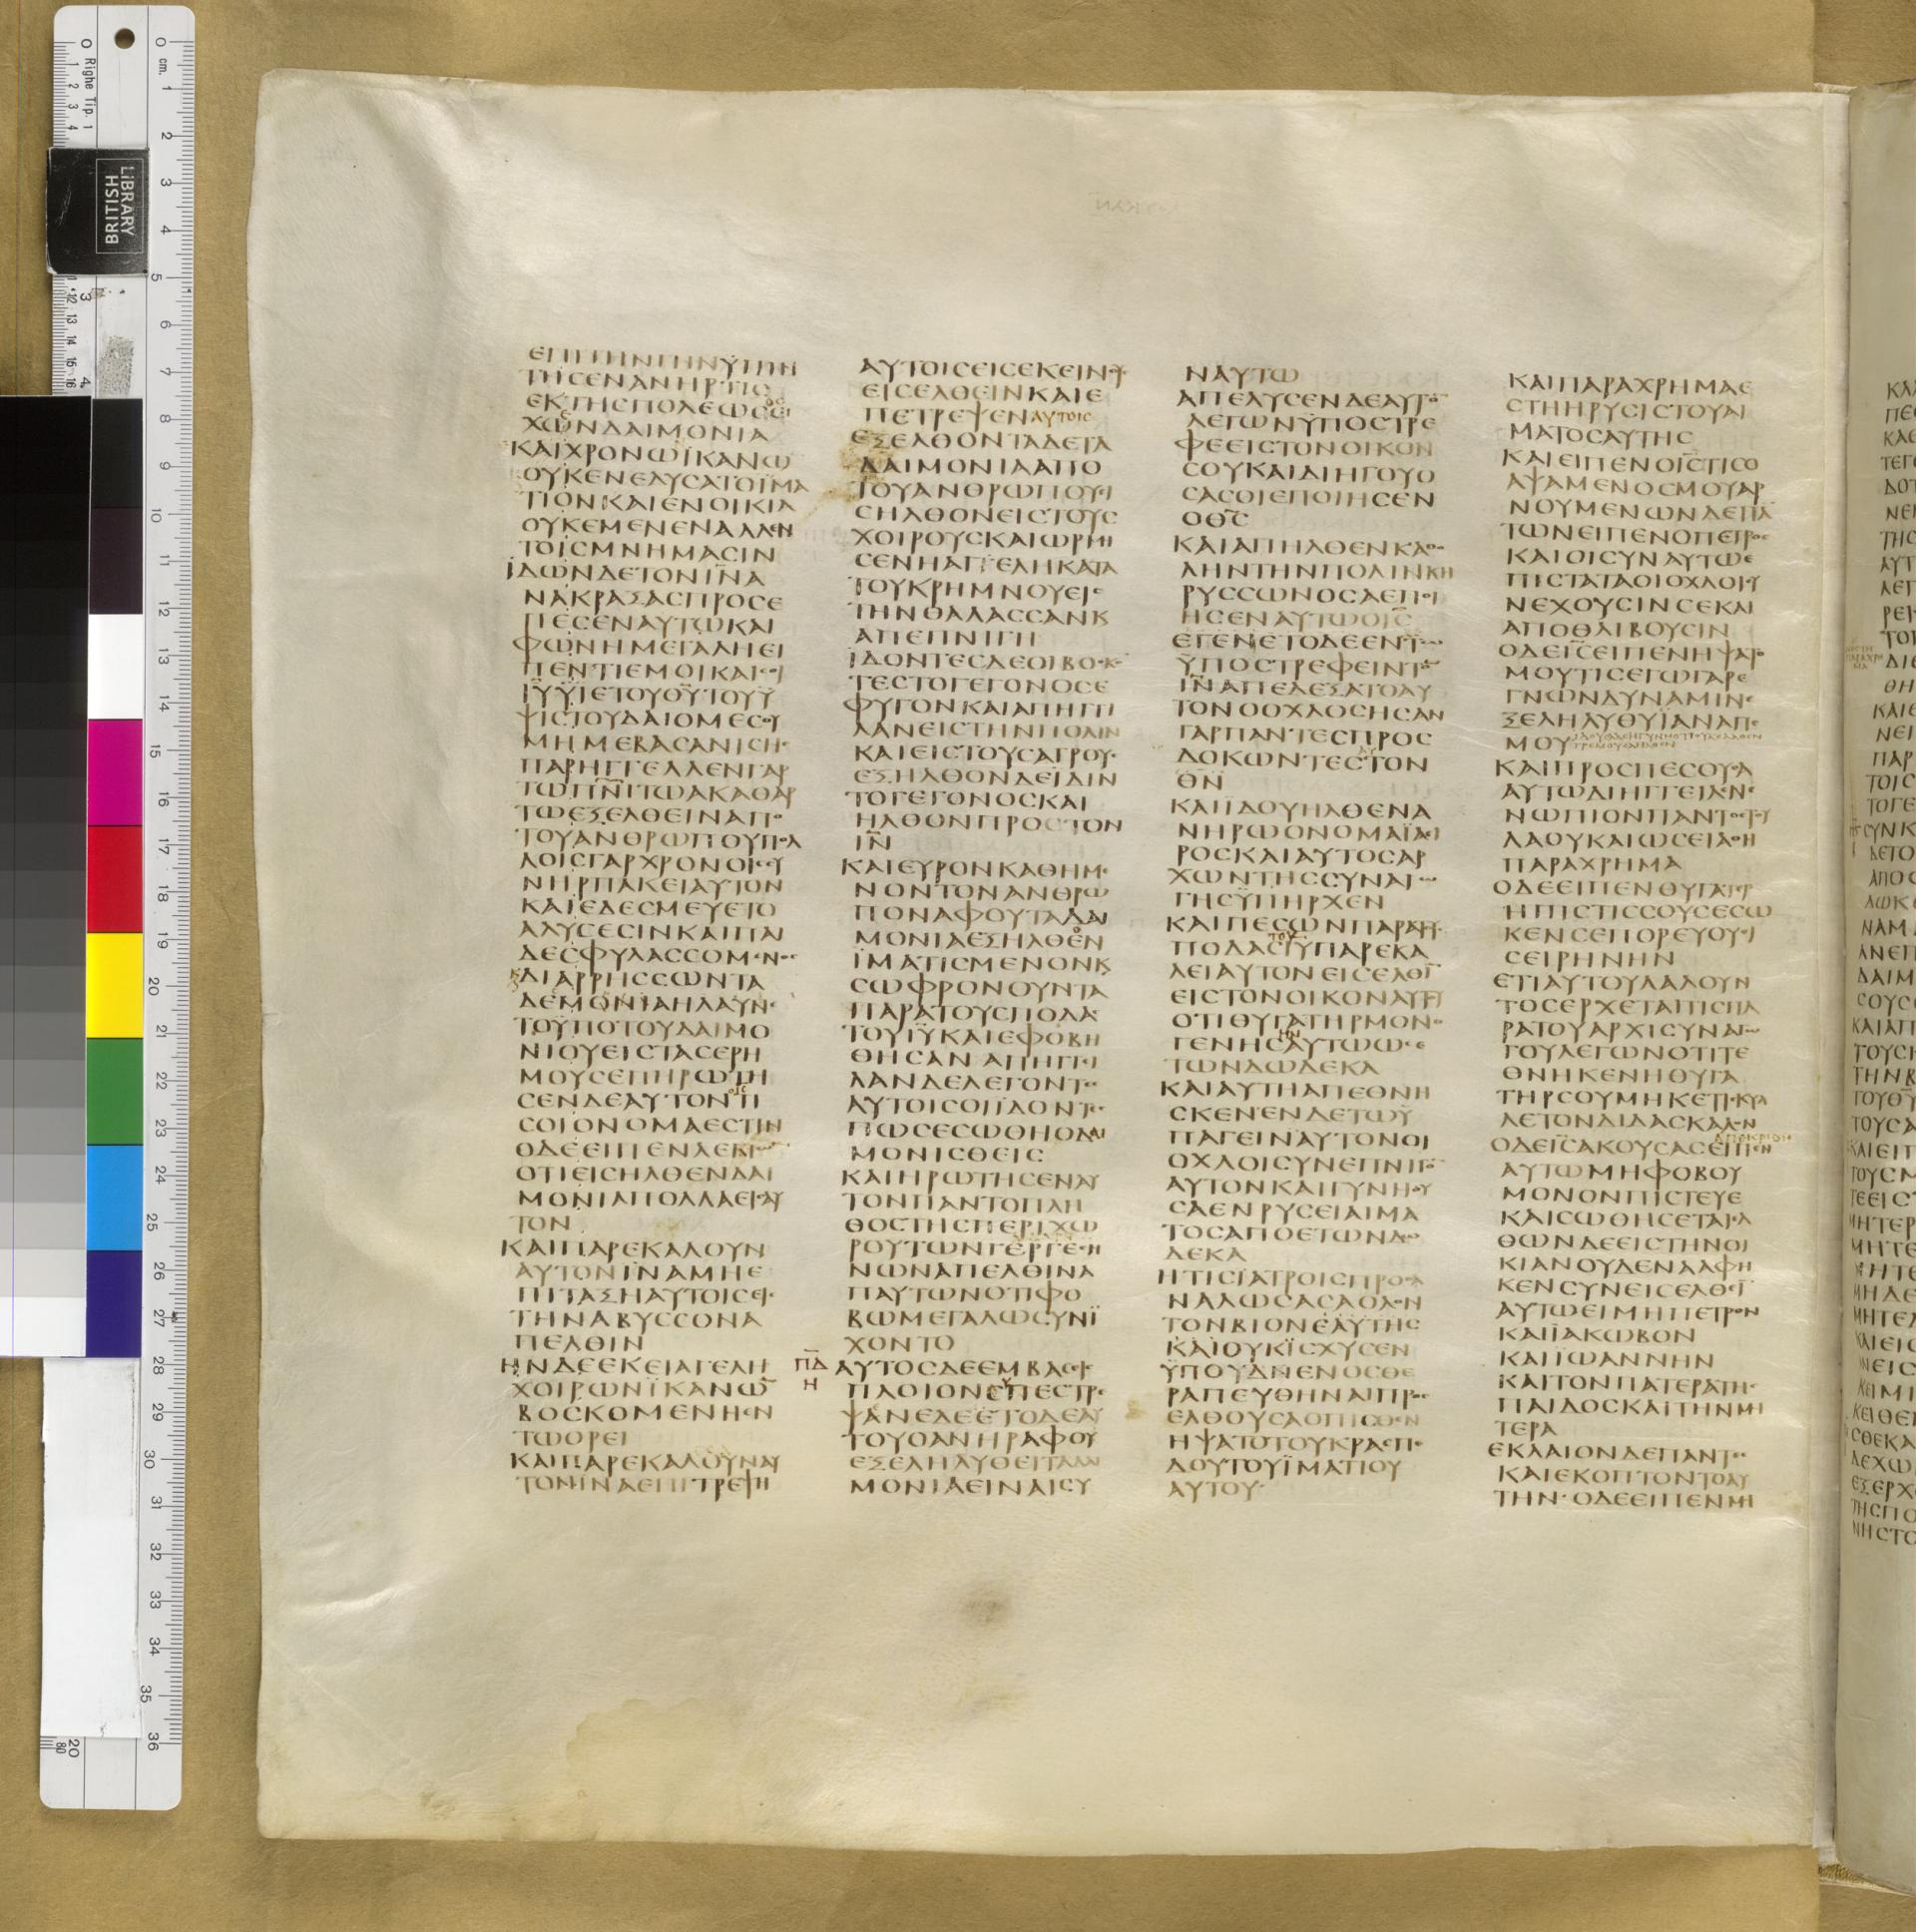 ΕΠΙΤΗΝΓΗΝΫΠΗΝ
ΤΗϹΕΝΑΝΗΡΤΙϹ
ΕΚΤΗϹΠΟΛΕΩϹ
ΧΩΝΔΑΙΜΟΝΙΑ
ΚΑΙΧΡΟΝΩΪΚΑΝΩ
ΟΥΚΕΝΕΔΥϹΑΤΟΪΜΑ
ΤΙΟΝΚΑΙΕΝΟΙΚΙΑ
ΟΥΚΕΜΕΝΕΝΑΛΛΕΝ
ΤΟΙϹΜΝΗΜΑϹΙΝ
ΪΔΩΝΔΕΤΟΝΙ̅Ν̅Α
ΝΑΚΡΑΞΑϹΠΡΟϹΕ
ΠΕϹΕΝΑΥΤΩΚΑΙ
ΦΩΝΗΜΕΓΑΛΗΕΙ
ΠΕΝΤΙΕΜΟΙΚΑΙϹΟΙ
Ι̅Υ̅ΫΙΕΤΟΥΘ̅Υ̅ΤΟΥΫ
ΨΙϹΤΟΥΔΑΙΟΜΕϹΟΥ
ΜΗΜΕΒΑϹΑΝΙϹΗϹ
ΠΑΡΗΓΓΕΛΛΕΝΓΑΡ
ΤΩΠ̅Ν̅Ι̅ΤΩΑΚΑΘΑΡ
ΤΩΕΞΕΛΘΕΙΝΑΠΟ
ΤΟΥΑΝΘΡΩΠΟΥΠΟΛ
ΛΟΙϹΓΑΡΧΡΟΝΟΙϹϹΥ
ΝΗΡΠΑΚΕΙΑΥΤΟΝ
ΚΑΙΕΔΕϹΜΕΥΕΤΟ
ΑΛΥϹΕϹΙΝΚΑΙΠΑΙ
ΔΕϹΦΥΛΑϹϹΟΜΕΝΟϹ
ΚΑΙΔΙΑΡΡΗϹϹΩΝΤΑ
ΔΕΜΟΝΙΑΗΛΑΥΝΕ
ΤΟΫΠΟΤΟΥΔΑΙΜΟ
ΝΙΟΥΕΙϹΤΑϹΕΡΗ
ΜΟΥϹΕΠΗΡΩΤΗ
ϹΕΝΔΕΑΥΤΟΝΤΙ
ϹΟΙΟΝΟΜΑΕϹΤΙΝ
ΟΔΕΕΙΠΕΝΛΕΓΙΩΝ
ΟΤΙΕΙϹΗΛΘΕΝΔΑΙ
ΜΟΝΙΑΠΟΛΛΑΕΙϹΑΥ
ΤΟΝ
ΚΑΙΠΑΡΕΚΑΛΟΥΝ
ΑΥΤΟΝΪΝΑΜΗΕ
ΠΙΤΑΞΗΑΥΤΟΙϹΕΙϹ
ΤΗΝΑΒΥϹϹΟΝΑ
ΠΕΛΘΙΝ
ΗΝΔΕΕΚΕΙΑΓΕΛΗ
ΧΟΙΡΩΝΪΚΑΝΩ̅
ΒΟϹΚΟΜΕΝΗΕΝ
ΤΩΟΡΕΙ
ΚΑΙΠΑΡΕΚΑΛΟΥΝΑΥ
ΤΟΝΙΝΑΕΠΙΤΡΕΨΗ
ΑΥΤΟΙϹΕΙϹΕΚΕΙΝΟΥϹ
ΕΙϹΕΛΘΕΙΝΚΑΙΕ
ΠΕΤΡΕΨΕΝΑΥΤΟΙϹ
ΕΞΕΛΘΟΝΤΑΔΕΤΑ
ΔΑΙΜΟΝΙΑΑΠΟ
ΤΟΥΑΝΘΡΩΠΟΥΕΙ
ϹΗΛΘΟΝΕΙϹΤΟΥϹ
ΧΟΙΡΟΥϹΚΑΙΩΡΜΗ
ϹΕΝΗΑΓΕΛΗΚΑΤΑ
ΤΟΥΚΡΗΜΝΟΥΕΙϹ
ΤΗΝΘΑΛΑϹϹΑΝΚ
ΑΠΕΠΝΙΓΗ
ΪΔΟΝΤΕϹΔΕΟΙΒΟϹΚΟ
ΤΕϹΤΟΓΕΓΟΝΟϹΕ
ΦΥΓΟΝΚΑΙΑΠΗΓΓΙ
ΛΑΝΕΙϹΤΗΝΠΟΛΙΝ
ΚΑΙΕΙϹΤΟΥϹΑΓΡΟΥϹ
ΕΞΗΛΘΟΝΔΕΪΔΙΝ
ΤΟΓΕΓΟΝΟϹΚΑΙ
ΗΛΘΟΝΠΡΟϹΤΟΝ
Ι̅Ν̅
ΚΑΙΕΥΡΟΝΚΑΘΗΜΕ
ΝΟΝΤΟΝΑΝΘΡΩ
ΠΟΝΑΦΟΥΤΑΔΑΙ
ΜΟΝΙΑΕΞΗΛΘΕΝ
ΪΜΑΤΙϹΜΕΝΟΝΚ
ϹΩΦΡΟΝΟΥΝΤΑ
ΠΑΡΑΤΟΥϹΠΟΔΑϹ
ΤΟΥΙ̅Υ̅ΚΑΙΕΦΟΒΗ
ΘΗϹΑΝΑΠΗΓΓΙ
ΛΑΝΔΕΛΕΓΟΝΤΕϹ
ΑΥΤΟΙϹΟΙΪΔΟΝΤΕϹ
ΠΩϹΕϹΩΘΗΟΔΑΙ
ΜΟΝΙϹΘΕΙϹ
ΚΑΙΗΡΩΤΗϹΕΝΑΥ
ΤΟΝΠΑΝΤΟΠΛΗ
ΘΟϹΤΗϹΠΕΡΙΧΩ
ΡΟΥΤΩΝΓΕΡΓΕϹΗ
ΝΩΝΑΠΕΛΘΙΝΑ
ΠΑΥΤΩΝΟΤΙΦΟ
ΒΩΜΕΓΑΛΩϹΥΝΪ
ΧΟΝΤΟ
Π̅Δ̅ ΑΥΤΟϹΔΕΕΜΒΑϹΕΙϹ
Η ΠΛΟΙΟΝΕΠΕϹΤΡΕ
ΨΑΝΕΔΕΕΤΟΔΕΑΥ
ΤΟΥΟΑΝΗΡΑΦΟΥ
ΕΞΕΛΗΛΥΘΕΙΤΑΔΑΙ
ΜΟΝΙΑΕΙΝΑΙϹΥ
ΝΑΥΤΩ
ΑΠΕΛΥϹΕΝΔΕΑΥΤΟ
ΛΕΓΩΝΫΠΟϹΤΡΕ
ΦΕΕΙϹΤΟΝΟΙΚΟΝ
ϹΟΥΚΑΙΔΙΗΓΟΥΟ
ϹΑϹΟΙΕΠΟΙΗϹΕΝ
ΟΘ̅Ϲ̅
ΚΑΙΑΠΗΛΘΕΝΚΑΘΟ
ΛΗΝΤΗΝΠΟΛΙΝΚΗ
ΡΥϹϹΩΝΟϹΑΕΠΟΙ
ΗϹΕΝΑΥΤΩΟΙ̅Ϲ̅
ΕΓΕΝΕΤΟΔΕΕΝΤΩ
ΫΠΟϹΤΡΕΦΕΙΝΤΟΝ
Ι̅Ν̅ΑΠΕΔΕΞΑΤΟΑΥ
ΤΟΝΟΟΧΛΟϹΗϹΑΝ
ΓΑΡΠΑΝΤΕϹΠΡΟϹ
ΔΟΚΩΝΤΕϹΤΟΝ
Θ̅Ν̅
ΚΑΙΪΔΟΥΗΛΘΕΝΑ
ΝΗΡΩΟΝΟΜΑΪΑΙ
ΡΟϹΚΑΙΑΥΤΟϹΑΡ
ΧΩΝΤΗϹϹΥΝΑΓΩ
ΓΗϹΫΠΗΡΧΕΝ
ΚΑΙΠΕϹΩΝΠΑΡΑΤΟΥϹ
ΠΟΔΑϹΙ̅Υ̅ΠΑΡΕΚΑ
ΛΕΙΑΥΤΟΝΕΙϹΕΛΘΙ̅
ΕΙϹΤΟΝΟΙΚΟΝΑΥΤΟΥ
ΟΤΙΘΥΓΑΤΗΡΜΟΝΟ
ΓΕΝΗϹΑΥΤΩΩϹΕ
ΤΩΝΔΩΔΕΚΑ
ΚΑΙΑΥΤΗΑΠΕΘΝΗ
ϹΚΕΝΕΝΔΕΤΩΫ
ΠΑΓΕΙΝΑΥΤΟΝΟΙ
ΟΧΛΟΙϹΥΝΕΠΝΙΓΟ
ΑΥΤΟΝΚΑΙΓΥΝΗΟΥ
ϹΑΕΝΡΥϹΕΙΑΙΜΑ
ΤΟϹΑΠΟΕΤΩΝΔΩ
ΔΕΚΑ
ΗΤΙϹΪΑΤΡΟΙϹΠΡΟϹΑ
ΝΑΛΩϹΑϹΑΟΛΟΝ
ΤΟΝΒΙΟΝΕΑΥΤΗϹ
ΚΑΙΟΥΚΪϹΧΥϹΕΝ
ΫΠΟΥΔΝΕΝΟϹΘΕ
ΡΑΠΕΥΘΗΝΑΙΠΡΟϹ
ΕΛΘΟΥϹΑΟΠΙϹΘΕΝ
ΗΨΑΤΟΤΟΥΚΡΑϹΠΕ
ΔΟΥΤΟΥΪΜΑΤΙΟΥ
ΑΥΤΟΥ
ΚΑΙΠΑΡΑΧΡΗΜΑΕ
ϹΤΗΗΡΥϹΙϹΤΟΥΑΙ
ΜΑΤΟϹΑΥΤΗϹ
ΚΑΙΕΙΠΕΝΟΙ̅Ϲ̅ΤΙϹΟ
ΑΨΑΜΕΝΟϹΜΟΥΑΡ
ΝΟΥΜΕΝΩΝΔΕΠΑ̅
ΤΩΝΕΙΠΕΝΟΠΕΤΡΟϹ
ΚΑΙΟΙϹΥΝΑΥΤΩΕ
ΠΙϹΤΑΤΑΟΙΟΧΛΟΙϹΥ
ΝΕΧΟΥϹΙΝϹΕΚΑΙ
ΑΠΟΘΛΙΒΟΥϹΙΝ
ΟΔΕΙ̅Ϲ̅ΕΙΠΕΝΗΨΑΤΟ
ΜΟΥΤΙϹΕΓΩΓΑΡΕ
ΓΝΩΝΔΥΝΑΜΙΝΕ
ΞΕΛΗΛΥΘΥΪΑΝΑΠΕ
ΜΟΥ
ΚΑΙΠΡΟϹΠΕϹΟΥϹΑ
ΑΥΤΩΔΙΗΓΓΕΙΛΕΝΕ
ΝΩΠΙΟΝΠΑΝΤΟϹΤΟΥ
ΛΑΟΥΚΑΙΩϹΕΙΑΘΗ
ΠΑΡΑΧΡΗΜΑ
ΟΔΕΕΙΠΕΝΘΥΓΑΤΕΡ
ΗΠΙϹΤΙϹϹΟΥϹΕϹΩ
ΚΕΝϹΕΠΟΡΕΥΟΥΕΙ
ϹΕΙΡΗΝΗΝ
ΕΤΙΑΥΤΟΥΛΑΛΟΥΝ
ΤΟϹΕΡΧΕΤΑΙΤΙϹΠΑ
ΡΑΤΟΥΑΡΧΙϹΥΝΑΓΩ
ΓΟΥΛΕΓΩΝΟΤΙΤΕ
ΘΝΗΚΕΝΗΘΥΓΑ
ΤΗΡϹΟΥΜΗΚΕΤΙϹΚΥΛ
ΛΕΤΟΝΔΙΔΑϹΚΑΛΟΝ
ΟΔΕΙ̅Ϲ̅ΑΚΟΥϹΑϹΕΙΠΕΝ
ΑΥΤΩΜΗΦΟΒΟΥ
ΜΟΝΟΝΠΙϹΤΕΥΕ
ΚΑΙϹΩΘΗϹΕΤΑΙΕΛ
ΘΩΝΔΕΕΙϹΤΗΝΟΙ
ΚΙΑΝΟΥΔΕΝΑΑΦΗ
ΚΕΝϹΥΝΕΙϹΕΛΘΙ̅
ΑΥΤΩΕΙΜΗΠΕΤΡΟΝ
ΚΑΙΪΑΚΩΒΟΝ
ΚΑΙΪΩΑΝΝΗΝ
ΚΑΙΤΟΝΠΑΤΕΡΑΤΗϹ
ΠΑΙΔΟϹΚΑΙΤΗΝΜΗ
ΤΕΡΑ
ΕΚΛΑΙΟΝΔΕΠΑΝΤΕϹ
ΚΑΙΕΚΟΠΤΟΝΤΟΑΥ
ΤΗΝ·ΟΔΕΕΙΠΕΝΜΗ
LIBRARY
BRITISH